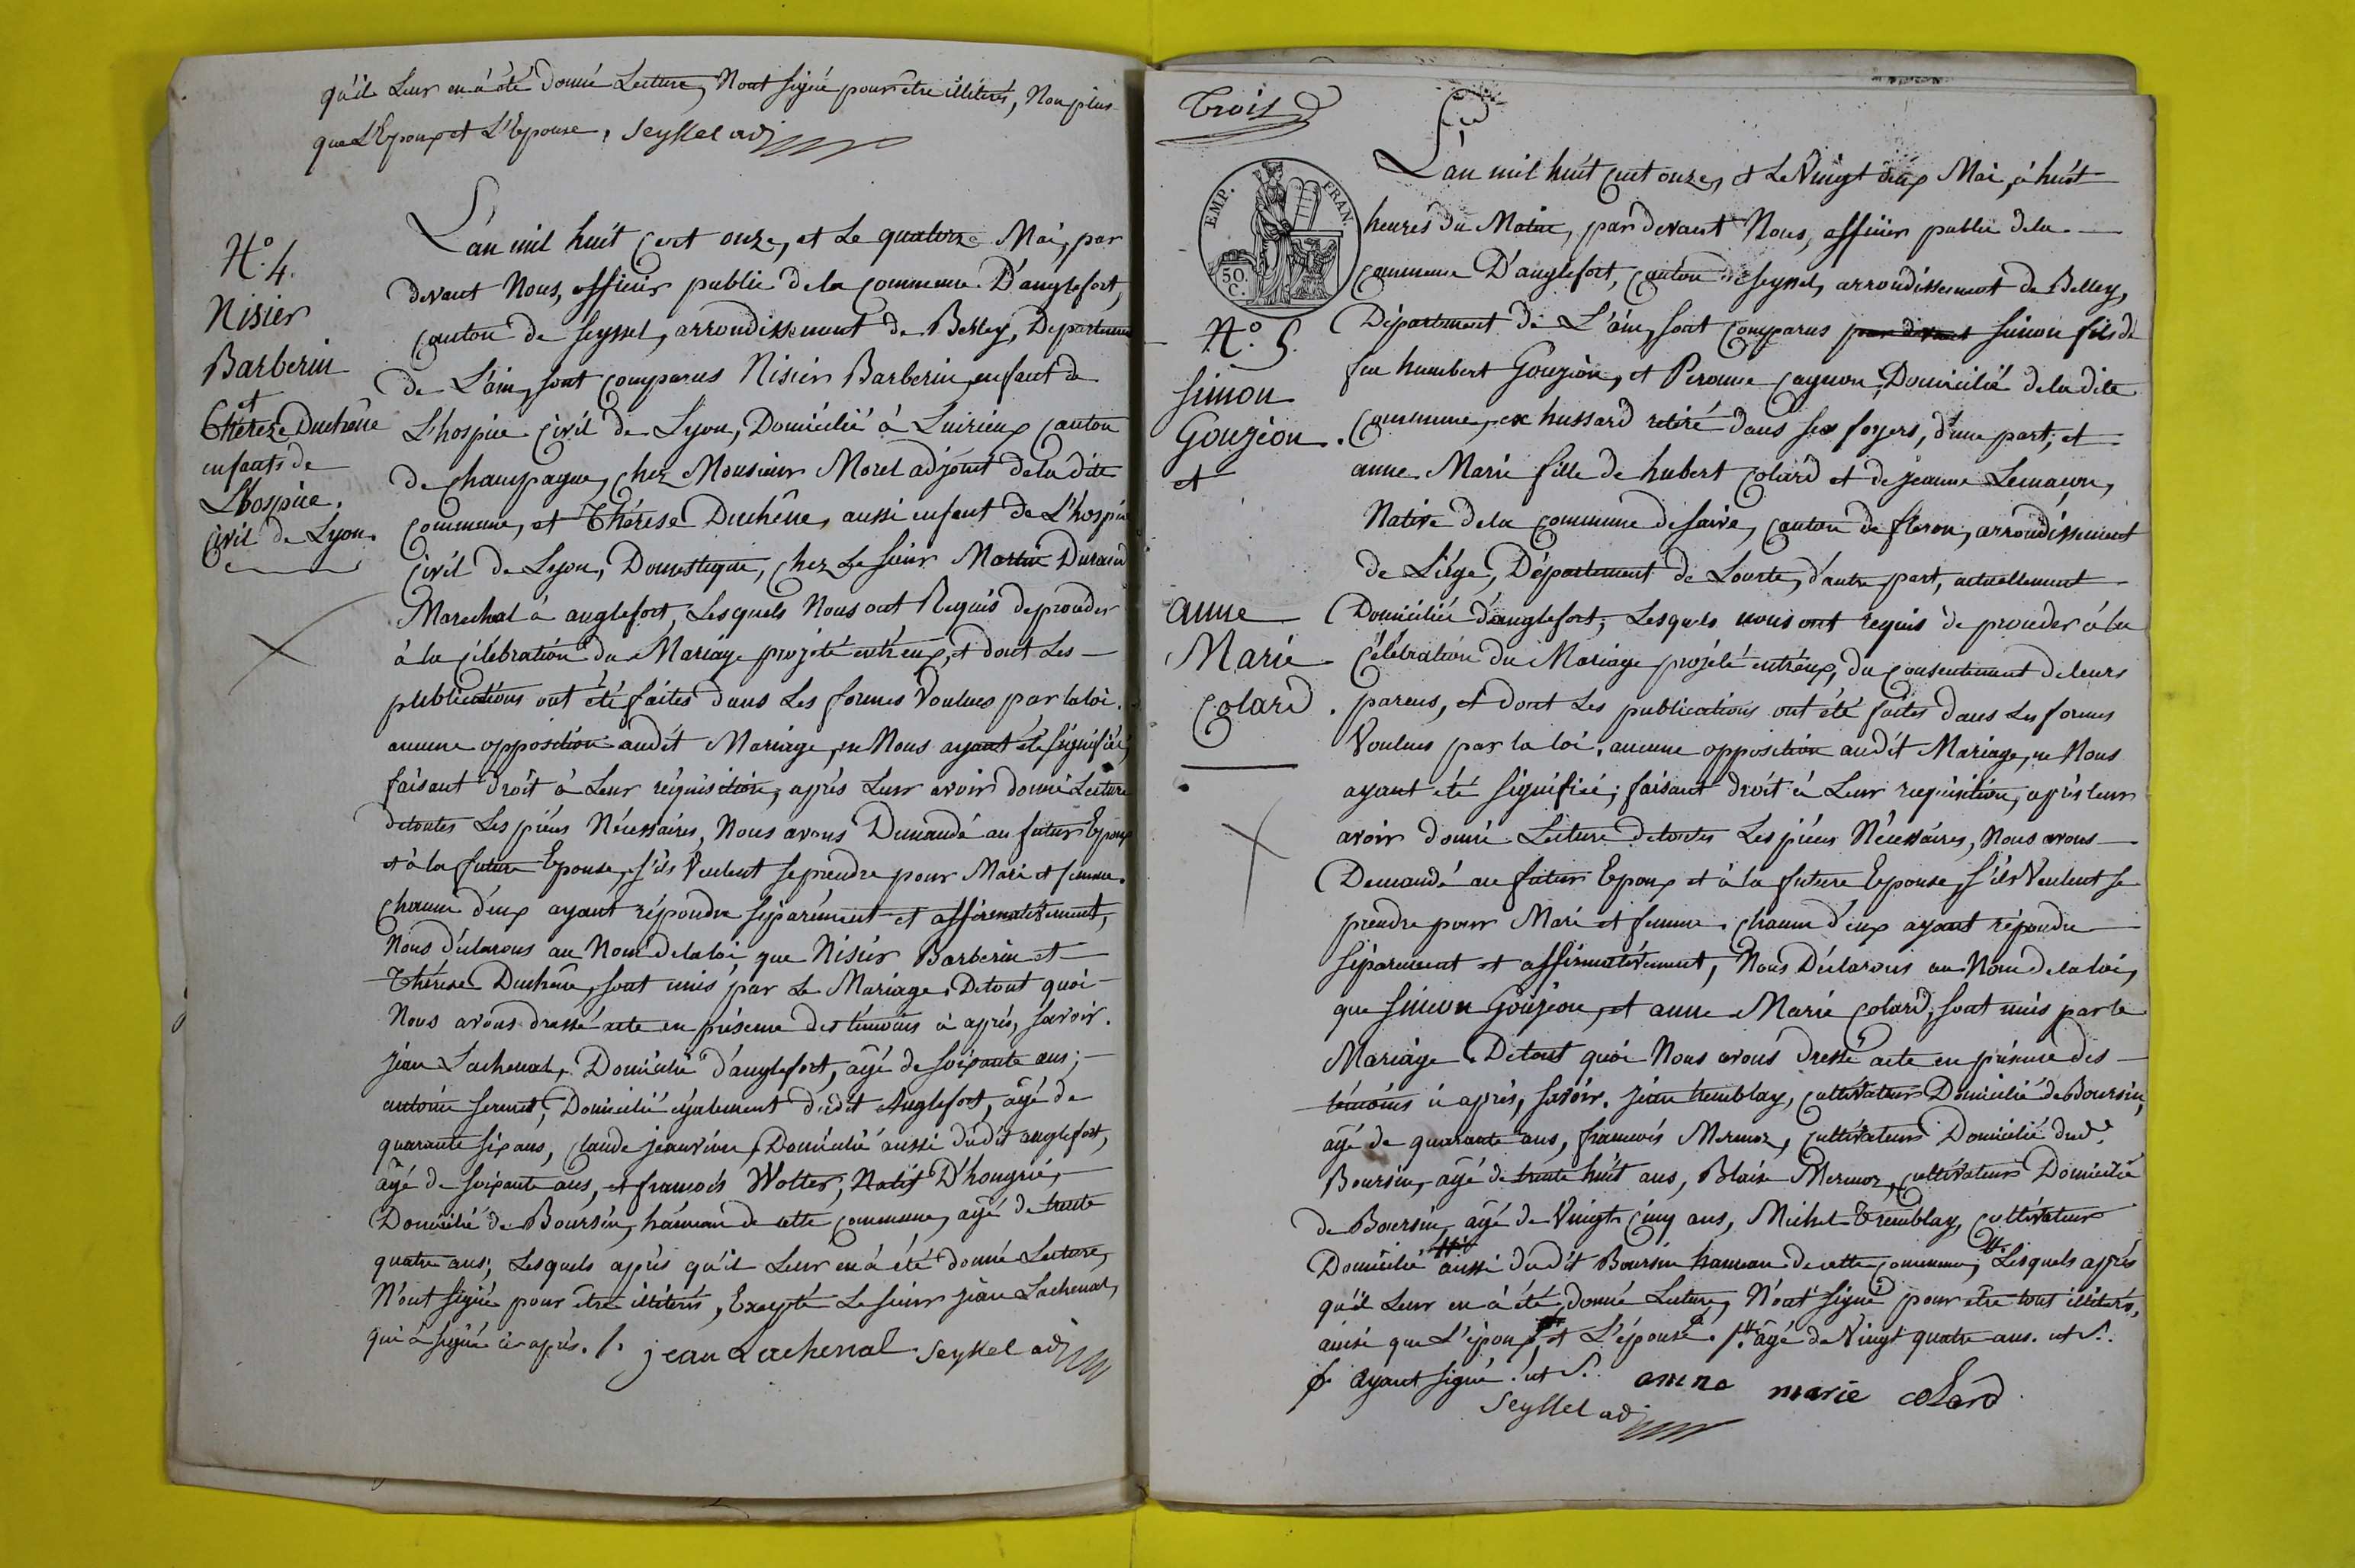 qu'il Leur en à été donné Lecture, N'ont signé pour être illiterés, Non plus
que L'Epoux et L'Epouse, Seyssel adj
N.° 4.
Nisier
Barberin
et
Thérèze Duchêne
enfants de
L'hospice
Civil de Lyon.
L'an mil huit Cent onze, et Le quatorze Mai, par
devant Nous, officier public de la Commune D'anglefort,
Canton de Seyssel, arrondissement de Belley, Departement
de L'ain, sont Comparus Nisier Barberin, enfant de
L'hospice Civil de Lyon, Domicilié à Luirieux Canton
de Champagne, Chez Monsieur Morel adjoint de la dite
Commune, et Thérèse Duchêne, aussi enfant de L'hospice
Civil de Lyon, Domestique, Chez Le sieur Martin Durand
Marechal à anglefort, Lesquels Nous ont Requis de proceder
à la Célébration du Mariage projeté entr'eux, et dont Les
publications ont été faites dans Les formes Voulues par la loi.
aucune opposition audit Mariage, ne Nous ayant été signifiée,
faisant droit à Leur réquisition, après Leur avoir donné Lecture
de toutes Les pièces Nécessaires, Nous avons Demandé au futur Epoux
et à la future Epouse, s'ils Veulent se prendre pour Mari et femme.
Chacun d'eux ayant répondu séparément et affirmativement,
Nous déclarons au Nom de la loi, que Nisier Barberin et
Thérèse Duchêne, sont unis par Le Mariage. De tout quoi
Nous avons dressé acte en présence des témoins ci après, savoir.
jean Lachenal, Domicilié d'anglefort, âgé de soixante ans;
antoine sermet, Domicilié également dudit Anglefort, âgé de
quarante six ans, Claude jeanvion, Domicilié aussi dudit anglefort,
âgé de soixante ans, et francois Wolter, Natif D'hongrie,
Domicilié de Boursin, hameau de cette Commune, âgé de trente
quatre ans; Lesquels après qu'il Leur en à été donné Lecture,
N'ont signé pour être illiterés, Excepté Le sieur jean Lachenal,
qui à signé ci après. /. jean Lachenal Seyssel adj
Trois
EMP. FRAN.
50 C.
N.° 5.
Simon
Gouzion.
et
anne
Marie
Colard.
L'an mil huit Cent onze, et Le Vingt deux Mai, à huit
heures du Matin, par devant Nous, officier public de la
Commune D'anglefort, Canton de Seyssel, arrondissement de Belley,
Département de L'ain, sont Comparus par devant simon fils de
feu humbert Gouzion, et Peronne Cagnon, Domicilié de la dite
Commune, ex hussard retiré dans ses foyers, d'une part; et
anne Marie fille de hubert Colard et de jeanne Lemaçon,
Native de la Commune de saive, Canton de fleron, arrondissement
de Liége, Département de Lourte, d'autre part, actuellement
Domiciliée d'anglefort; Lesquels nous ont requis de proceder à la
Célébration du Mariage projeté entr'eux, du Consentement de leurs
parens, et dont Les publications ont été faites dans Les formes
Voulues par la loi. aucune opposition audit Mariage, ne Nous
ayant été signifiée; faisant droit à Leur requisition, après leur
avoir donné Lecture de toutes Les pièces Nécessaires, Nous avons
Demandé au futur Epoux et à la future Epouse, s'ils Veulent se
prendre pour Mari et femme. Chacun d'eux ayant répondu
séparement et affirmativement, Nous Déclarons au Nom de la loi,
que simon Gouzion, et anne Marie Colard, sont unis par le
Mariage. De tout quoi Nous avons dressé acte en présence des
témoins ci après, savoir. jean tremblay, Cultivateur Domicilié de Boursin,
âgé de quarante ans, francois Mermoz, Cultivateur Domicilié dud.t
Boursin, âgé de trente huit ans, Blaise Mermoz, Cultivateur Domicilié
de Boursin, âgé de Vingt Cinq ans, Michel Tremblay, Cultivateur
Domicilié aussi dudit Boursin hameau de cette Commune, # Lesquels après
qu'il Leur en à été donné Lecture, N'ont signé pour être tous illiterés,
ainsi que L'époux, et L'épouse. /. # âgé de Vingt quatre ans. ut S.
ƒ. ayant signé. ut S. anne marie colard
Seyssel adj